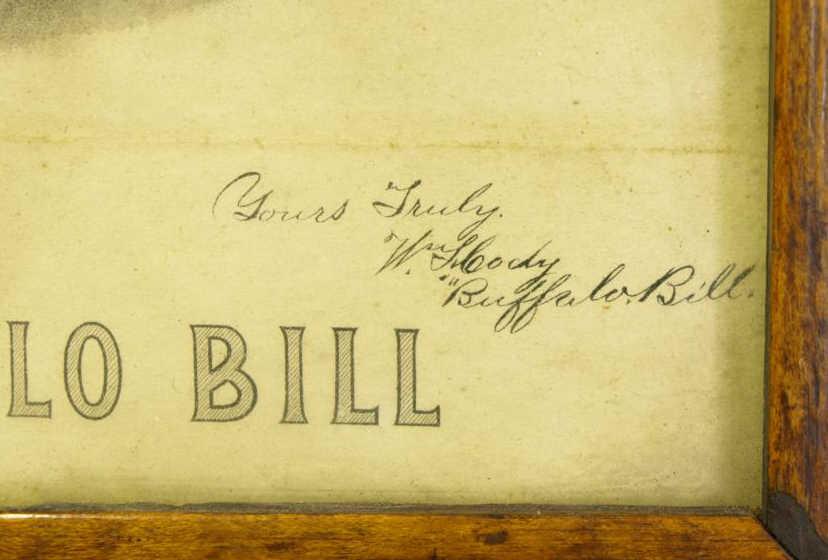 Yours Truly.
Wm. F. Cody
"Buffalo. Bill.
LO BILL